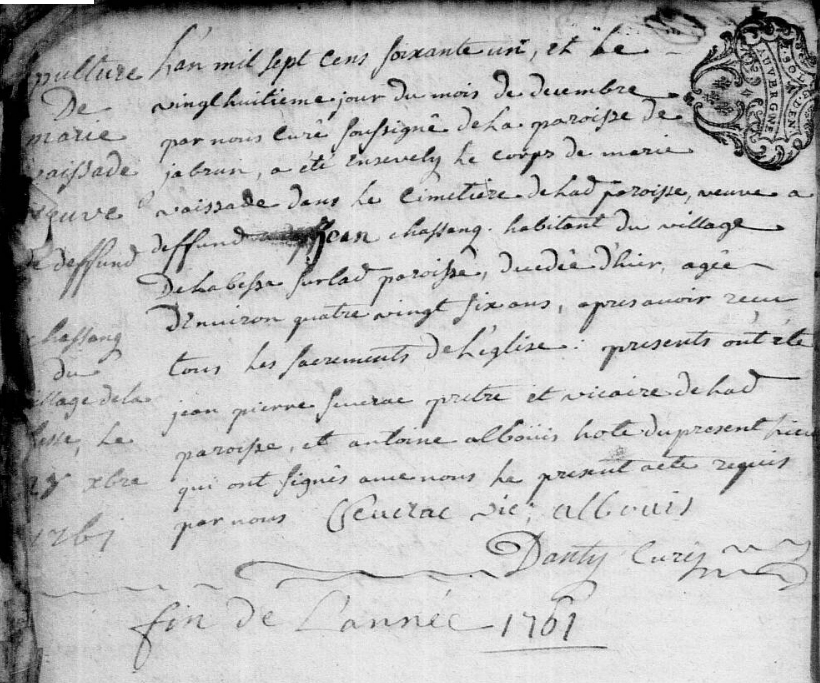 pulture
De
marie
vaissade
veuve
de deffund
chassang
du
village dela
besse, le
28 xbre
1761
L'an mil sept cens soixante un, et le
vingt huitieme jour du mois de decembre
par nous curé soussigné de la paroisse de
jabrun, a été ensevely le corps de marie
vaissade dans le cimetiere de lad paroisse, veuve a
deffund Jean chassang. habitant du village
De labesse sur lad paroisse, decedée d'hier, agée
D'environ quatre vingt six ans, apres avoir recu
tous les sacrements de l'eglise: presents ont été
jean pierre severac pretre et vicaire de lad
paroisse, et antoine alboüis hote du present lieu
qui ont signés avec nous le present acte requis
par nous Severac vic; alboüis
Danty Curé
fin de L'année 1761
AUVERGNE